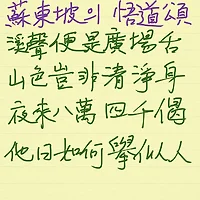 蘇東坡의 悟道頌
溪聲便是廣長舌
山色豈非淸淨身
夜來八萬四千偈
他日如何擧似人